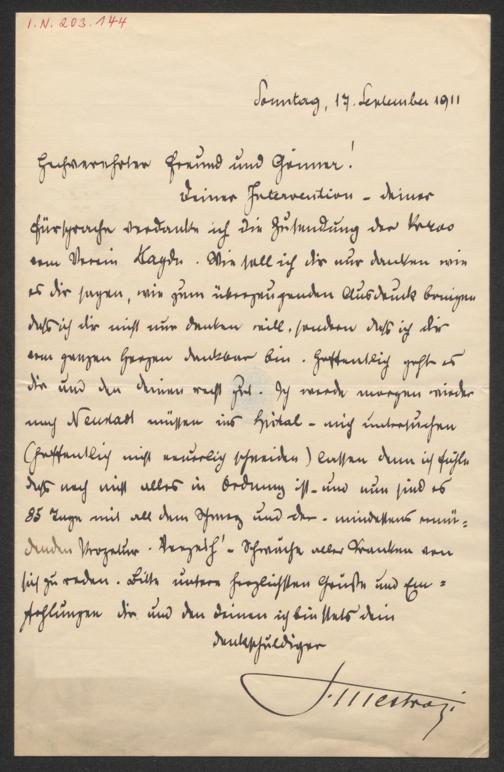 I.N. 203.144
Sonntag, 17. September 1911
Hochverehrter Freund und Gönner!
Deiner Intervention - deiner
Fürsprache verdanke ich die Zusendung der
vom Verein Haydn. Wie soll ich dir nur danken wie
es dir sagen, wie zum überzeugenden Ausdruck bringen
daß ich dir nicht nur danken will, sondern daß ich dir
vom ganzen Herzen dankbar bin. Hoffentlich geht es
dir und den deinen recht gut. Ich werde morgen wieder
nach Neustadt müssen ins Spital - mich untersuchen
(hoffentlich nicht neuerlich schneiden) lassen denn ich fühle
daß noch nicht alles in Ordnung ist - und nun sind es
85 Tage mit all dem Schmerz und der - mindestens ermü=
denden Prozedur. Verzeih! - Schwäche aller Kranken von
sich zu reden. Bitte unsere herzlichsten Grüße und Em=
pfehlungen dir und den deinen ich bin stets dein
dankschuldiger